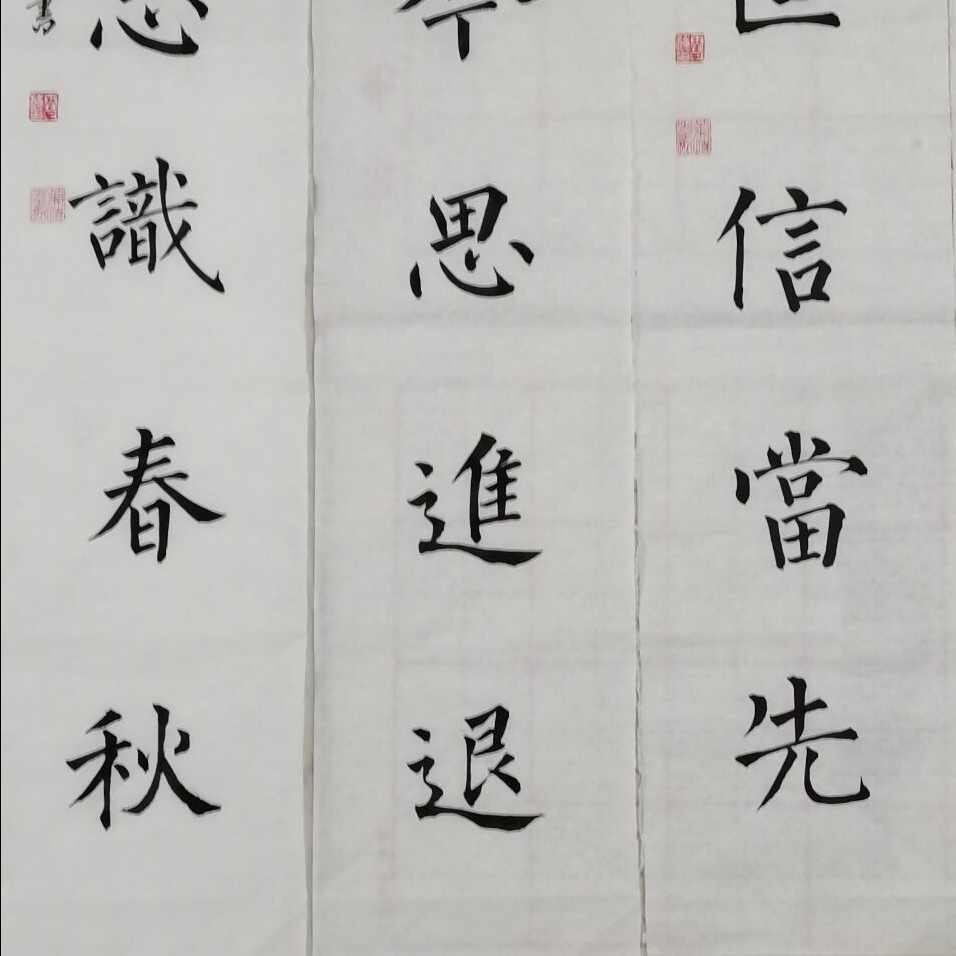 信當先
思進退
識春秋
書